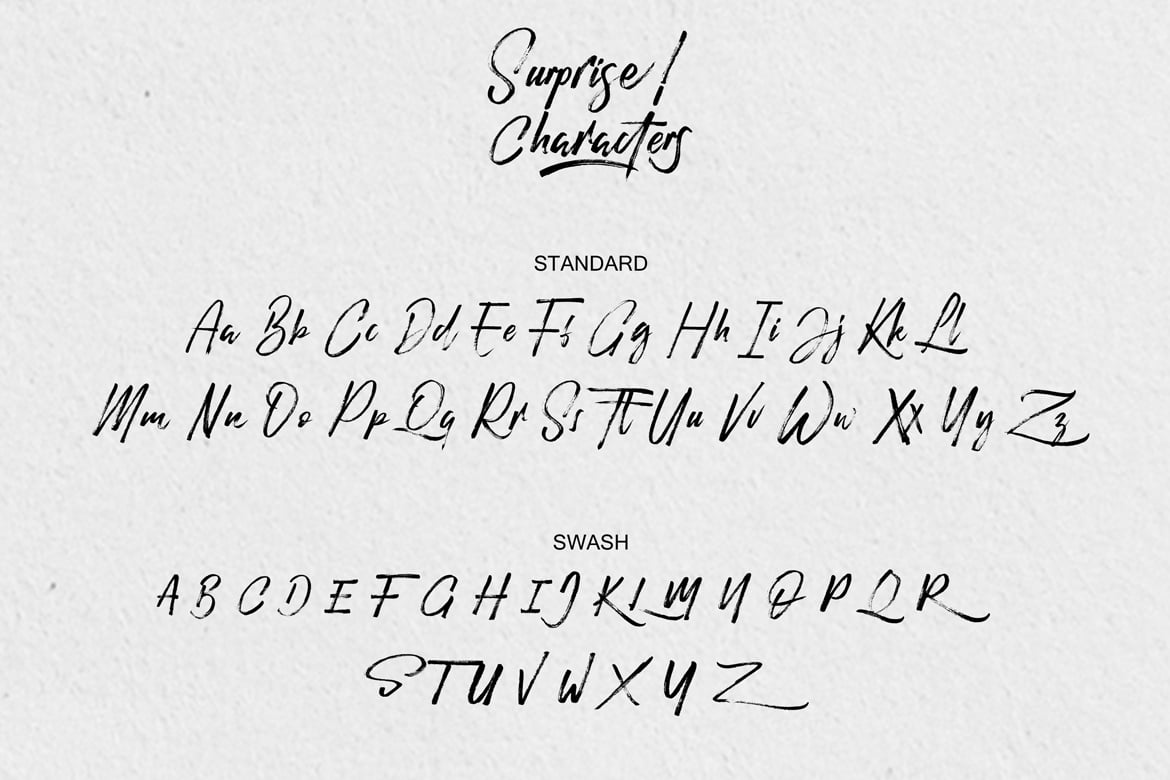 Surprise!
Characters
STANDARD
Aa Bb Cc Dd Ee Ff Gg Hh Ii Jj Kk Ll
Mm Nn Oo Pp Qq Rr Ss Tt Uu Vv Ww Xx Yy Zz
SWASH
A B C D E F G H I J K L M N O P Q R
S T U V W X Y Z